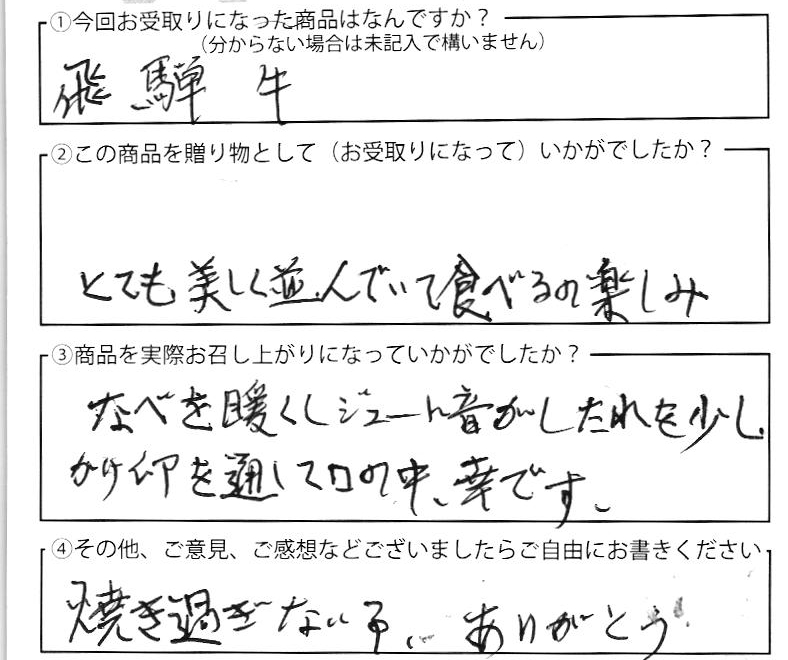 ①今回お受取りになった商品はなんですか？
（分からない場合は未記入で構いません）
飛騨牛
②この商品を贈り物として（お受取りになって）いかがでしたか？
とても美しく並んでいて食べるの楽しみ
③商品を実際お召し上がりになっていかがでしたか？
なべを暖くしジュート音がしたれを少し
かけ を通して口の中、幸です。
④その他、ご意見、ご感想などございましたらご自由にお書きください
焼き過ぎない 、ありがとう